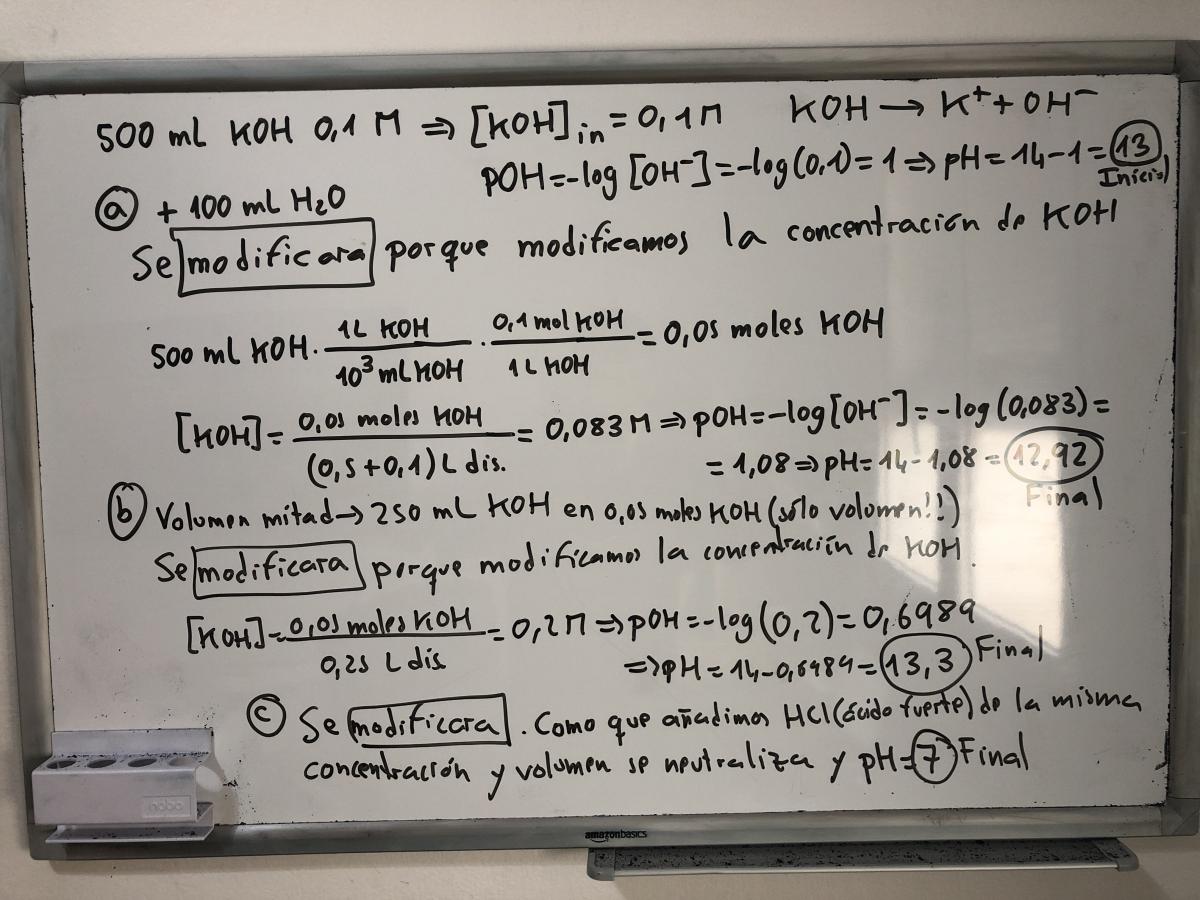 500 mL KOH 0,1 M ⇒ [KOH]in = 0,1M KOH → K⁺ + OH⁻
pOH = -log [OH⁻] = -log(0,1) = 1 ⇒ pH = 14-1 = 13
Inicial
a + 100 mL H₂O
Se modificara porque modificamos la concentración de KOH
500 mL KOH · 1L KOH / 10³ mL KOH · 0,1 mol KOH / 1L KOH = 0,05 moles KOH
[KOH] = 0,05 moles KOH / (0,5+0,1) L dis. = 0,083 M ⇒ pOH = -log[OH⁻] = -log(0,083) =
= 1,08 ⇒ pH = 14-1,08 = 12,92
Final
b Volumen mitad → 250 mL KOH en 0,05 moles KOH (sólo volumen!!)
Se modificara porque modificamos la concentración de KOH.
[KOH] = 0,05 moles KOH / 0,25 L dis. = 0,2 M ⇒ pOH = -log(0,2) = 0,6989
⇒ pH = 14-0,6989 = 13,3 Final
c Se modificara. Como que añadimos HCl (ácido fuerte) de la misma
concentración y volumen se neutraliza y pH = 7 Final
nobo
amazonbasics